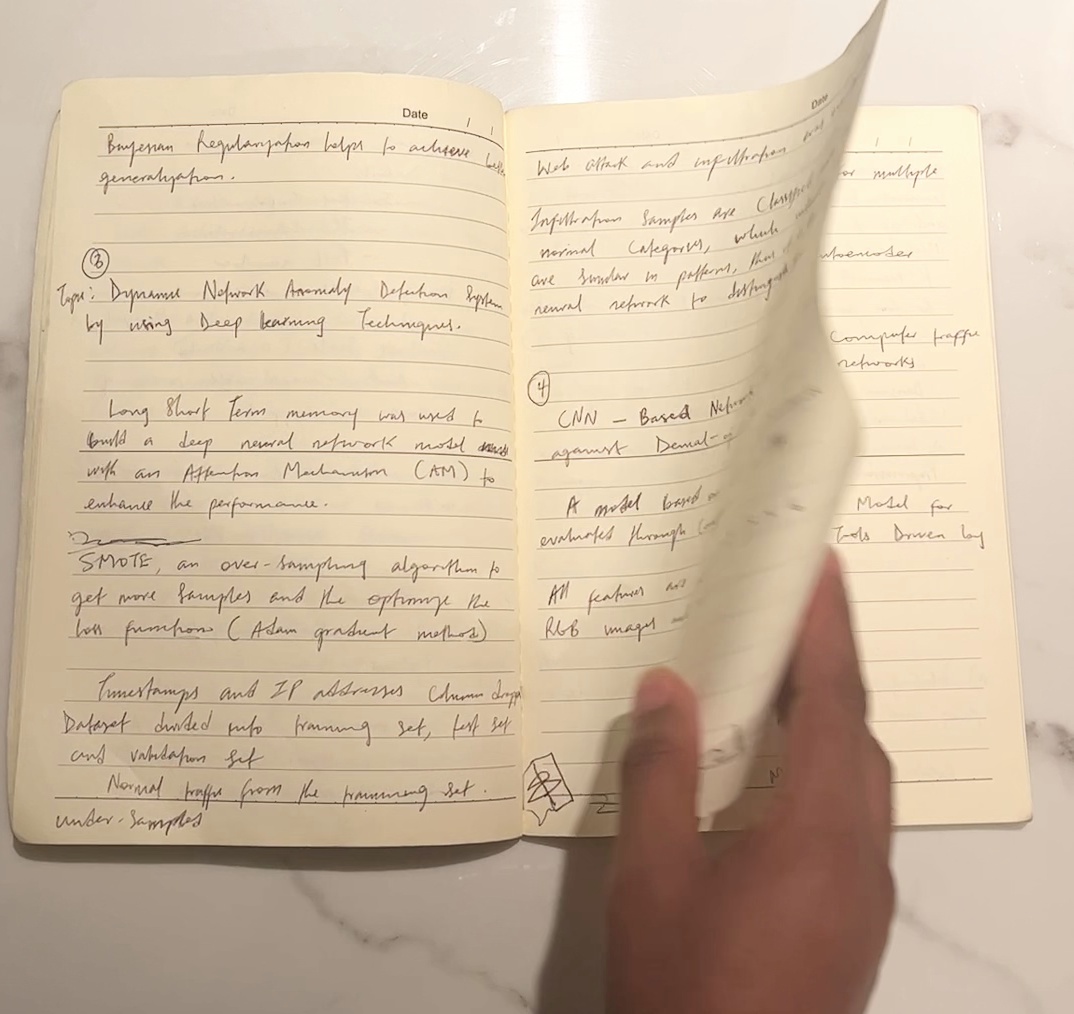 Date / /
Bayesian Regularization helps to achieve
generalization.
3
Topic: Dynamic Network Anomaly Detection System
by using Deep learning Techniques.
Long Short Term memory was used to
build a deep neural network model
with an Attention Mechanism (AM) to
enhance the performance.
SMOTE, an over-sampling algorithm to
get more samples and the optimize the
loss function (Adam gradient method)
Timestamps and IP addresses column
Dataset divided into training set, test set
and validation set
Normal traffic from the training set.
under-samples
Date
Web attack and infiltration
Infiltration samples are classified
normal categories, which
are similar in patterns, thus
neural network to distinguish
4
CNN - Based
against
A model based
evaluates through
All features are
RGB images
2
/ /
or multiple
utoencoder
Computer traffic
networks
Model for
Tools Driven by